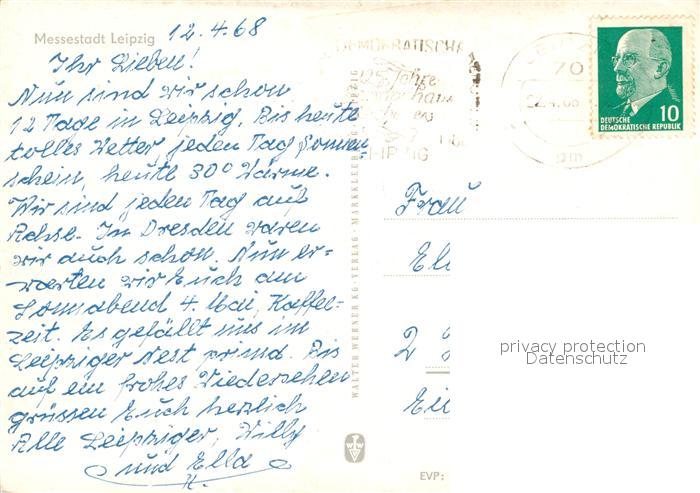 Messestadt Leipzig
12.4.68
Ihr Lieben!
Nun sind wir schon
12 Tage in Leipzig. Bis heute
tolles Wetter, jeden Tag Sonnen-
schein, heute 30° Wärme.
Wir sind jeden Tag auf
Achse. In Dresden waren
wir auch schon. Nun er-
warten wir Euch am
Sonnabend 4. Mai, Kaffee-
zeit. Es gefällt uns im
Leipziger Nest prima. Bis
auf ein frohes Wiedersehen
grüssen Euch herzlich
Alle Leipziger, Willy
und Ella
WALTER WERNER KG · VERLAG · MARKKLEEBERG-LEIPZIG
DEMOKRATISCHE
Jahre
70
10
DEUTSCHE
DEMOKRATISCHE REPUBLIK
Frau
El
2
Ei
privacy protection
Datenschutz
EVP: